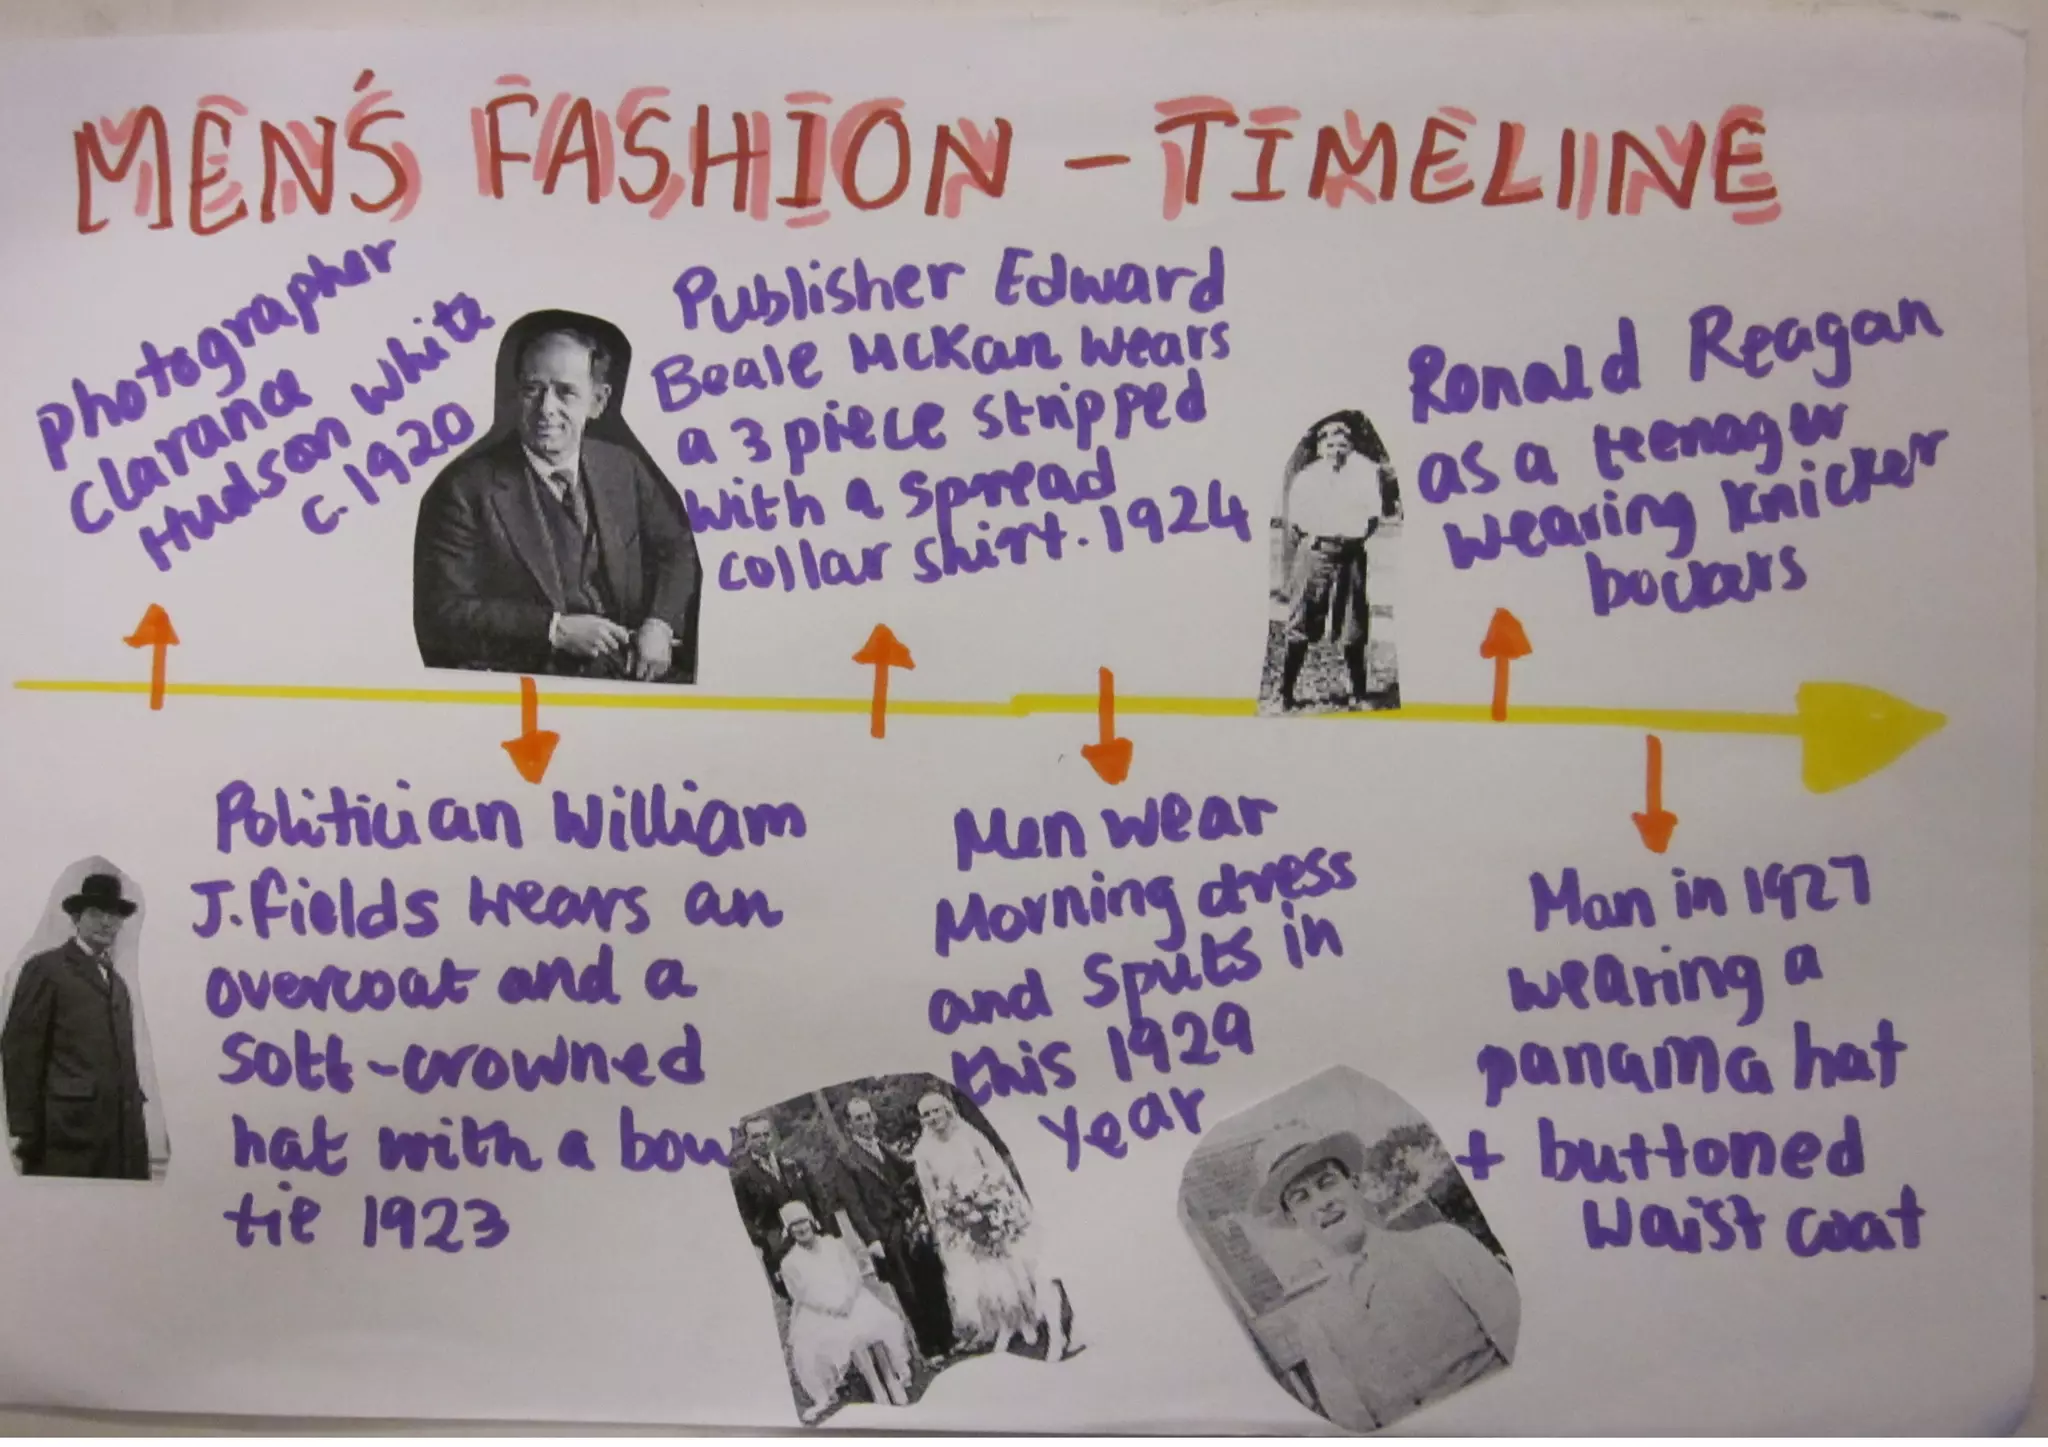 MEN'S FASHION - TIMELINE
photographer
Clarance
Hudson white
c. 1920
Publisher Edward
Beale McKan wears
a 3 piece stripped
with a spread
collar shirt. 1924
Ronald Reagan
as a teenager
wearing knicker
bockers
Politician William
J. Fields wears an
overcoat and a
soft-crowned
hat with a bow
tie 1923
Men wear
Morning dress
and Sputs in
this 1929
year
Man in 1927
wearing a
panama hat
+ buttoned
waist coat